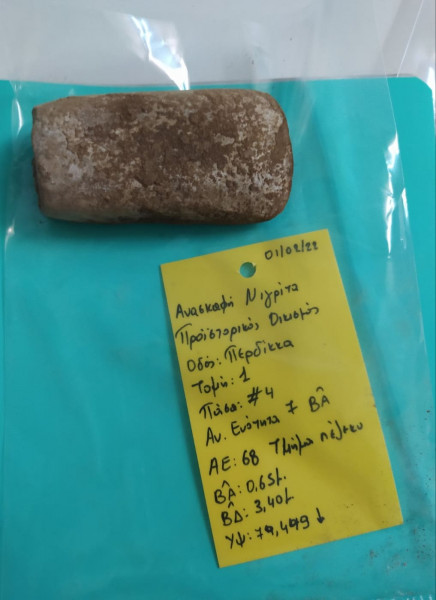 01/02/22
Ανασκαφή Νιγρίτα
Προϊστορικός Οικισμός
Οδός: Περδίκκα
Τομή: 1
Πάσα: #4
Αν. Ενότητα 7 ΒΑ
ΑΕ: 68 Τμήμα πέλεκυ
ΒΑ: 0,65μ.
ΒΔ: 3,40μ
ΥΨ: ↓